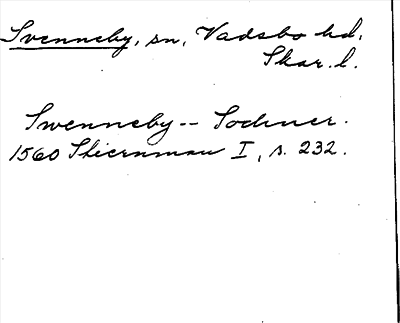 Svenneby, sn, Vadsbo hd,
Skar. l.
Swenneby -- Sochner.
1560 Stiernman I, s. 232.